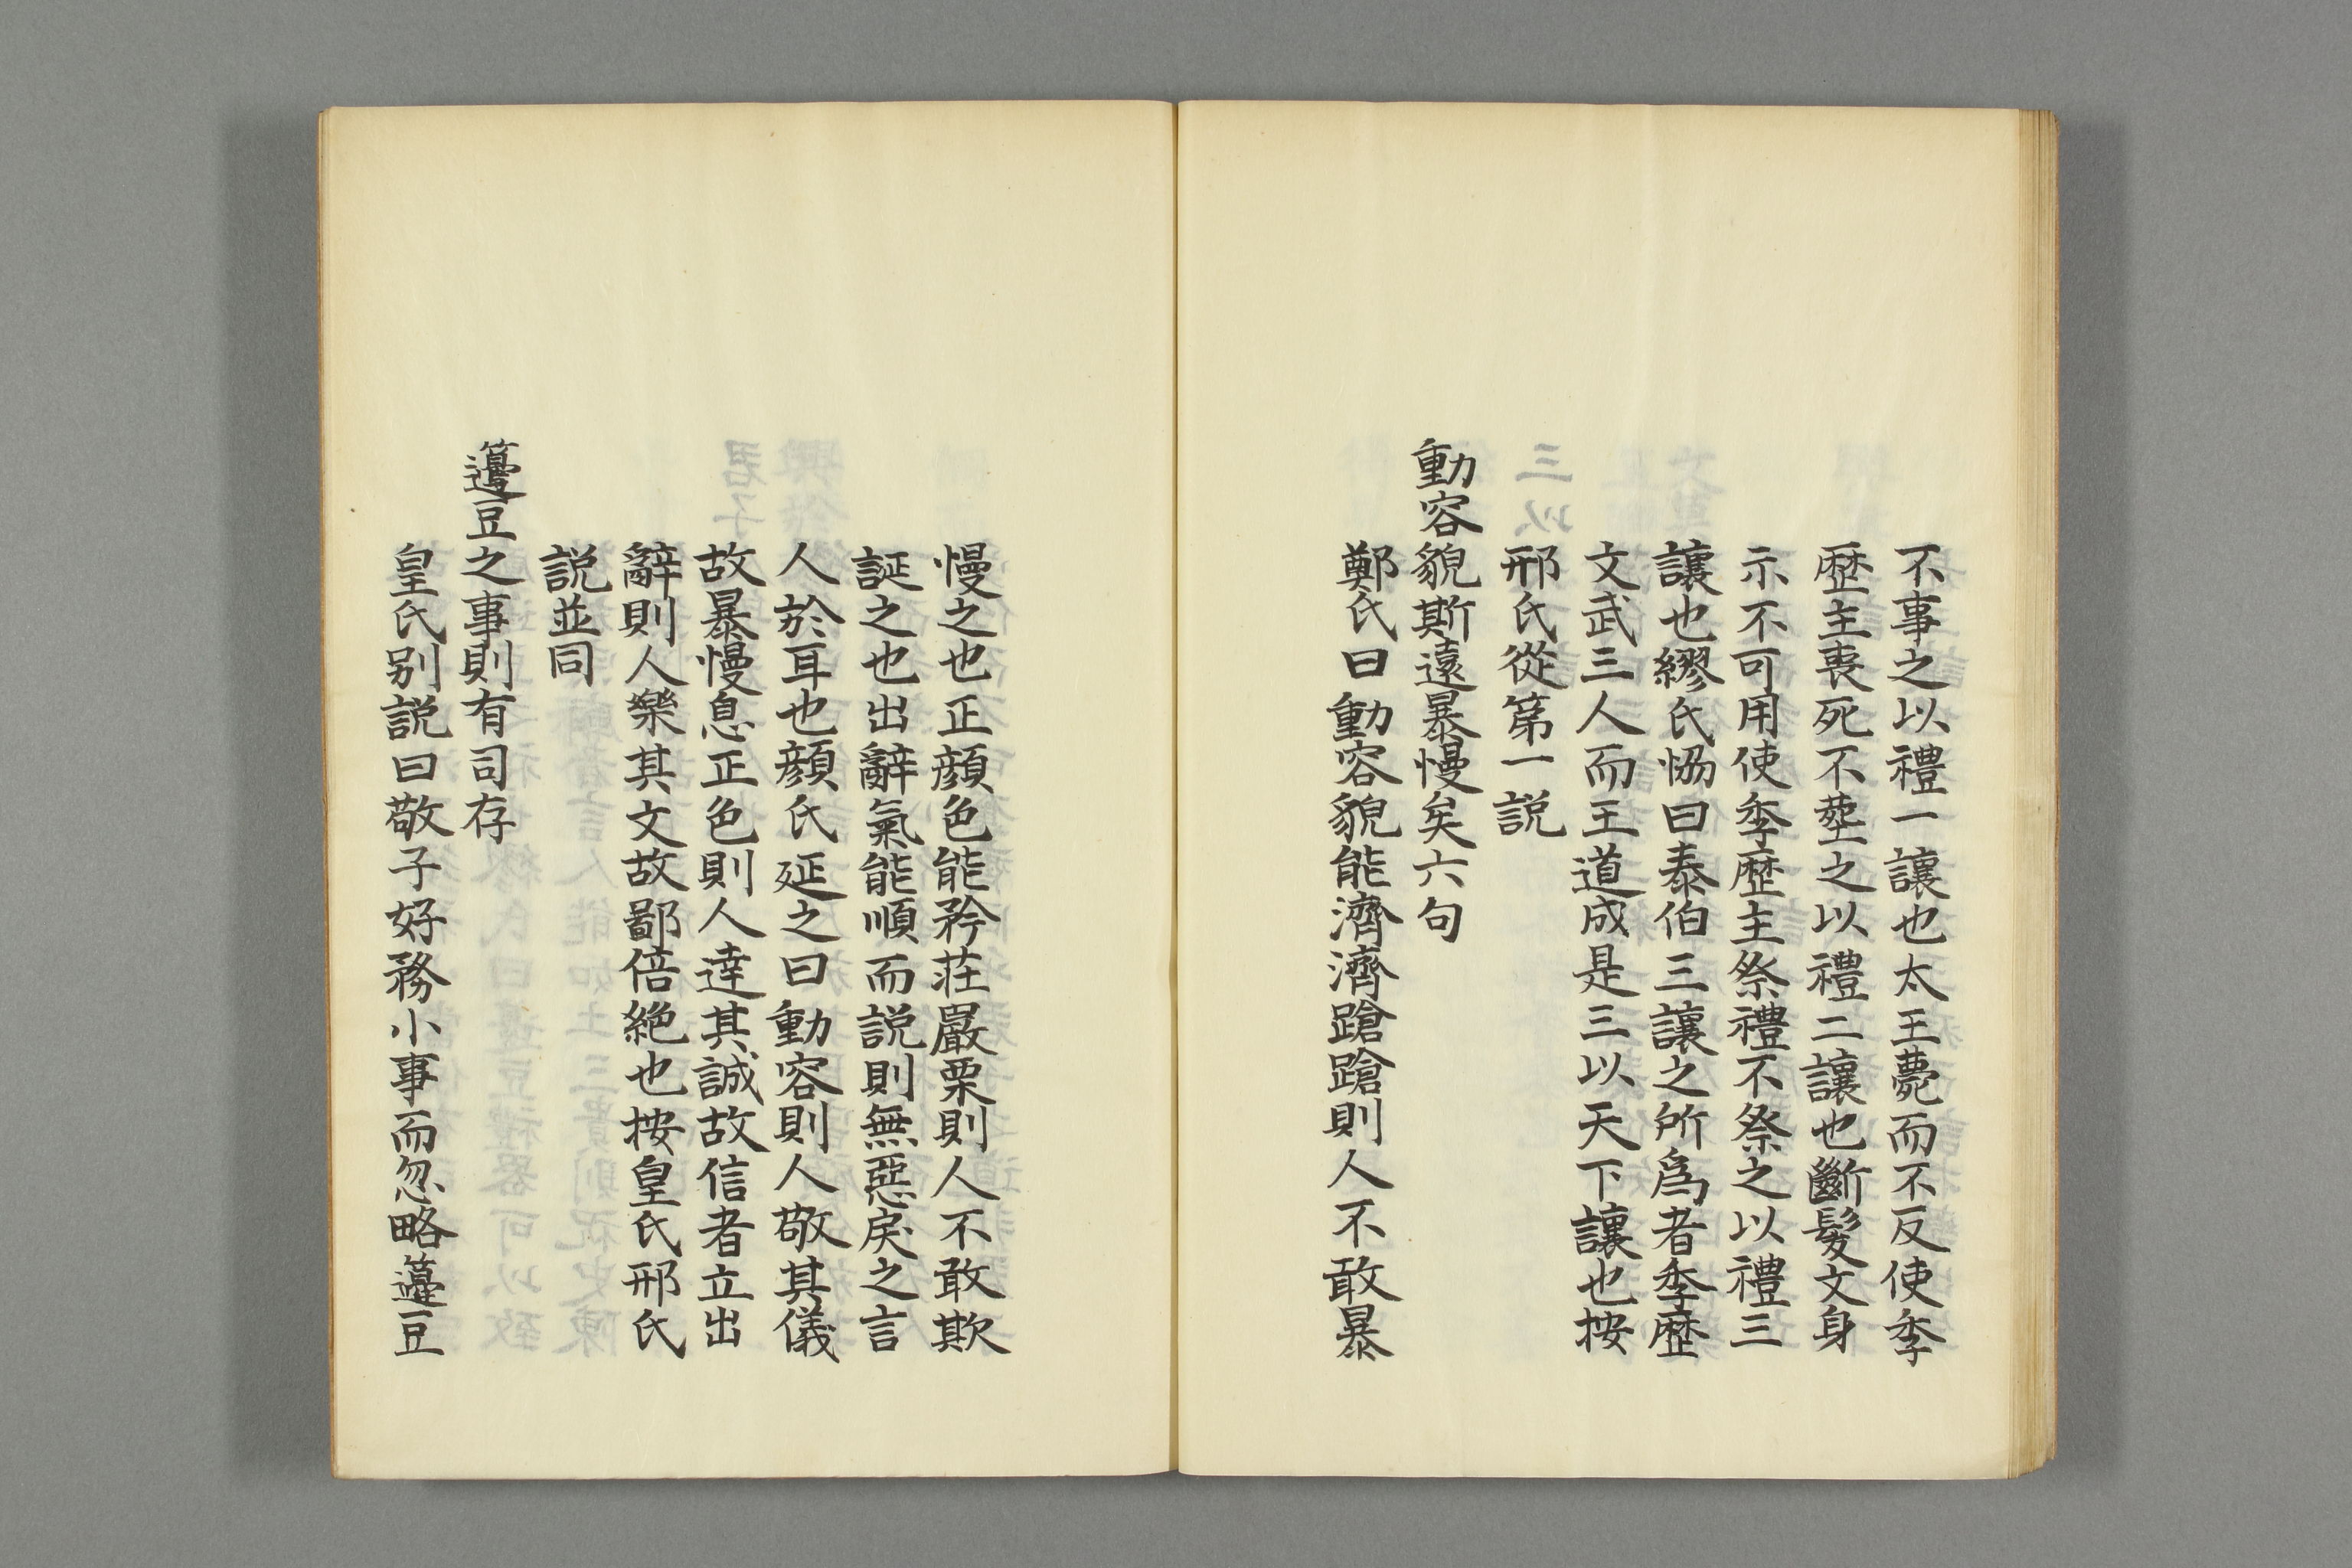 不事之以禮一讓也太王薨而不反使季
歷主喪死不塟之以禮二讓也斷髮文身
示不可用使季歷主祭禮不祭之以禮三
讓也繆氏恊曰泰伯三讓之所爲者季歷
文武三人而王道成是三以天下讓也按
邢氏從第一説
動容貌斯遠暴慢矣六句
鄭氏曰動容貌能濟濟蹌蹌則人不敢暴
慢之也正顔色能矜莊嚴栗則人不敢欺
誕之也出辭氣能順而説則無惡戻之言
人於耳也顔氏延之曰動容則人敬其儀
故暴慢息正色則人達其誠故信者立出
辭則人樂其文故鄙倍絶也按皇氏邢氏
説並同
籩豆之事則有司存
皇氏别説曰敬子好務小事而忽略籩豆